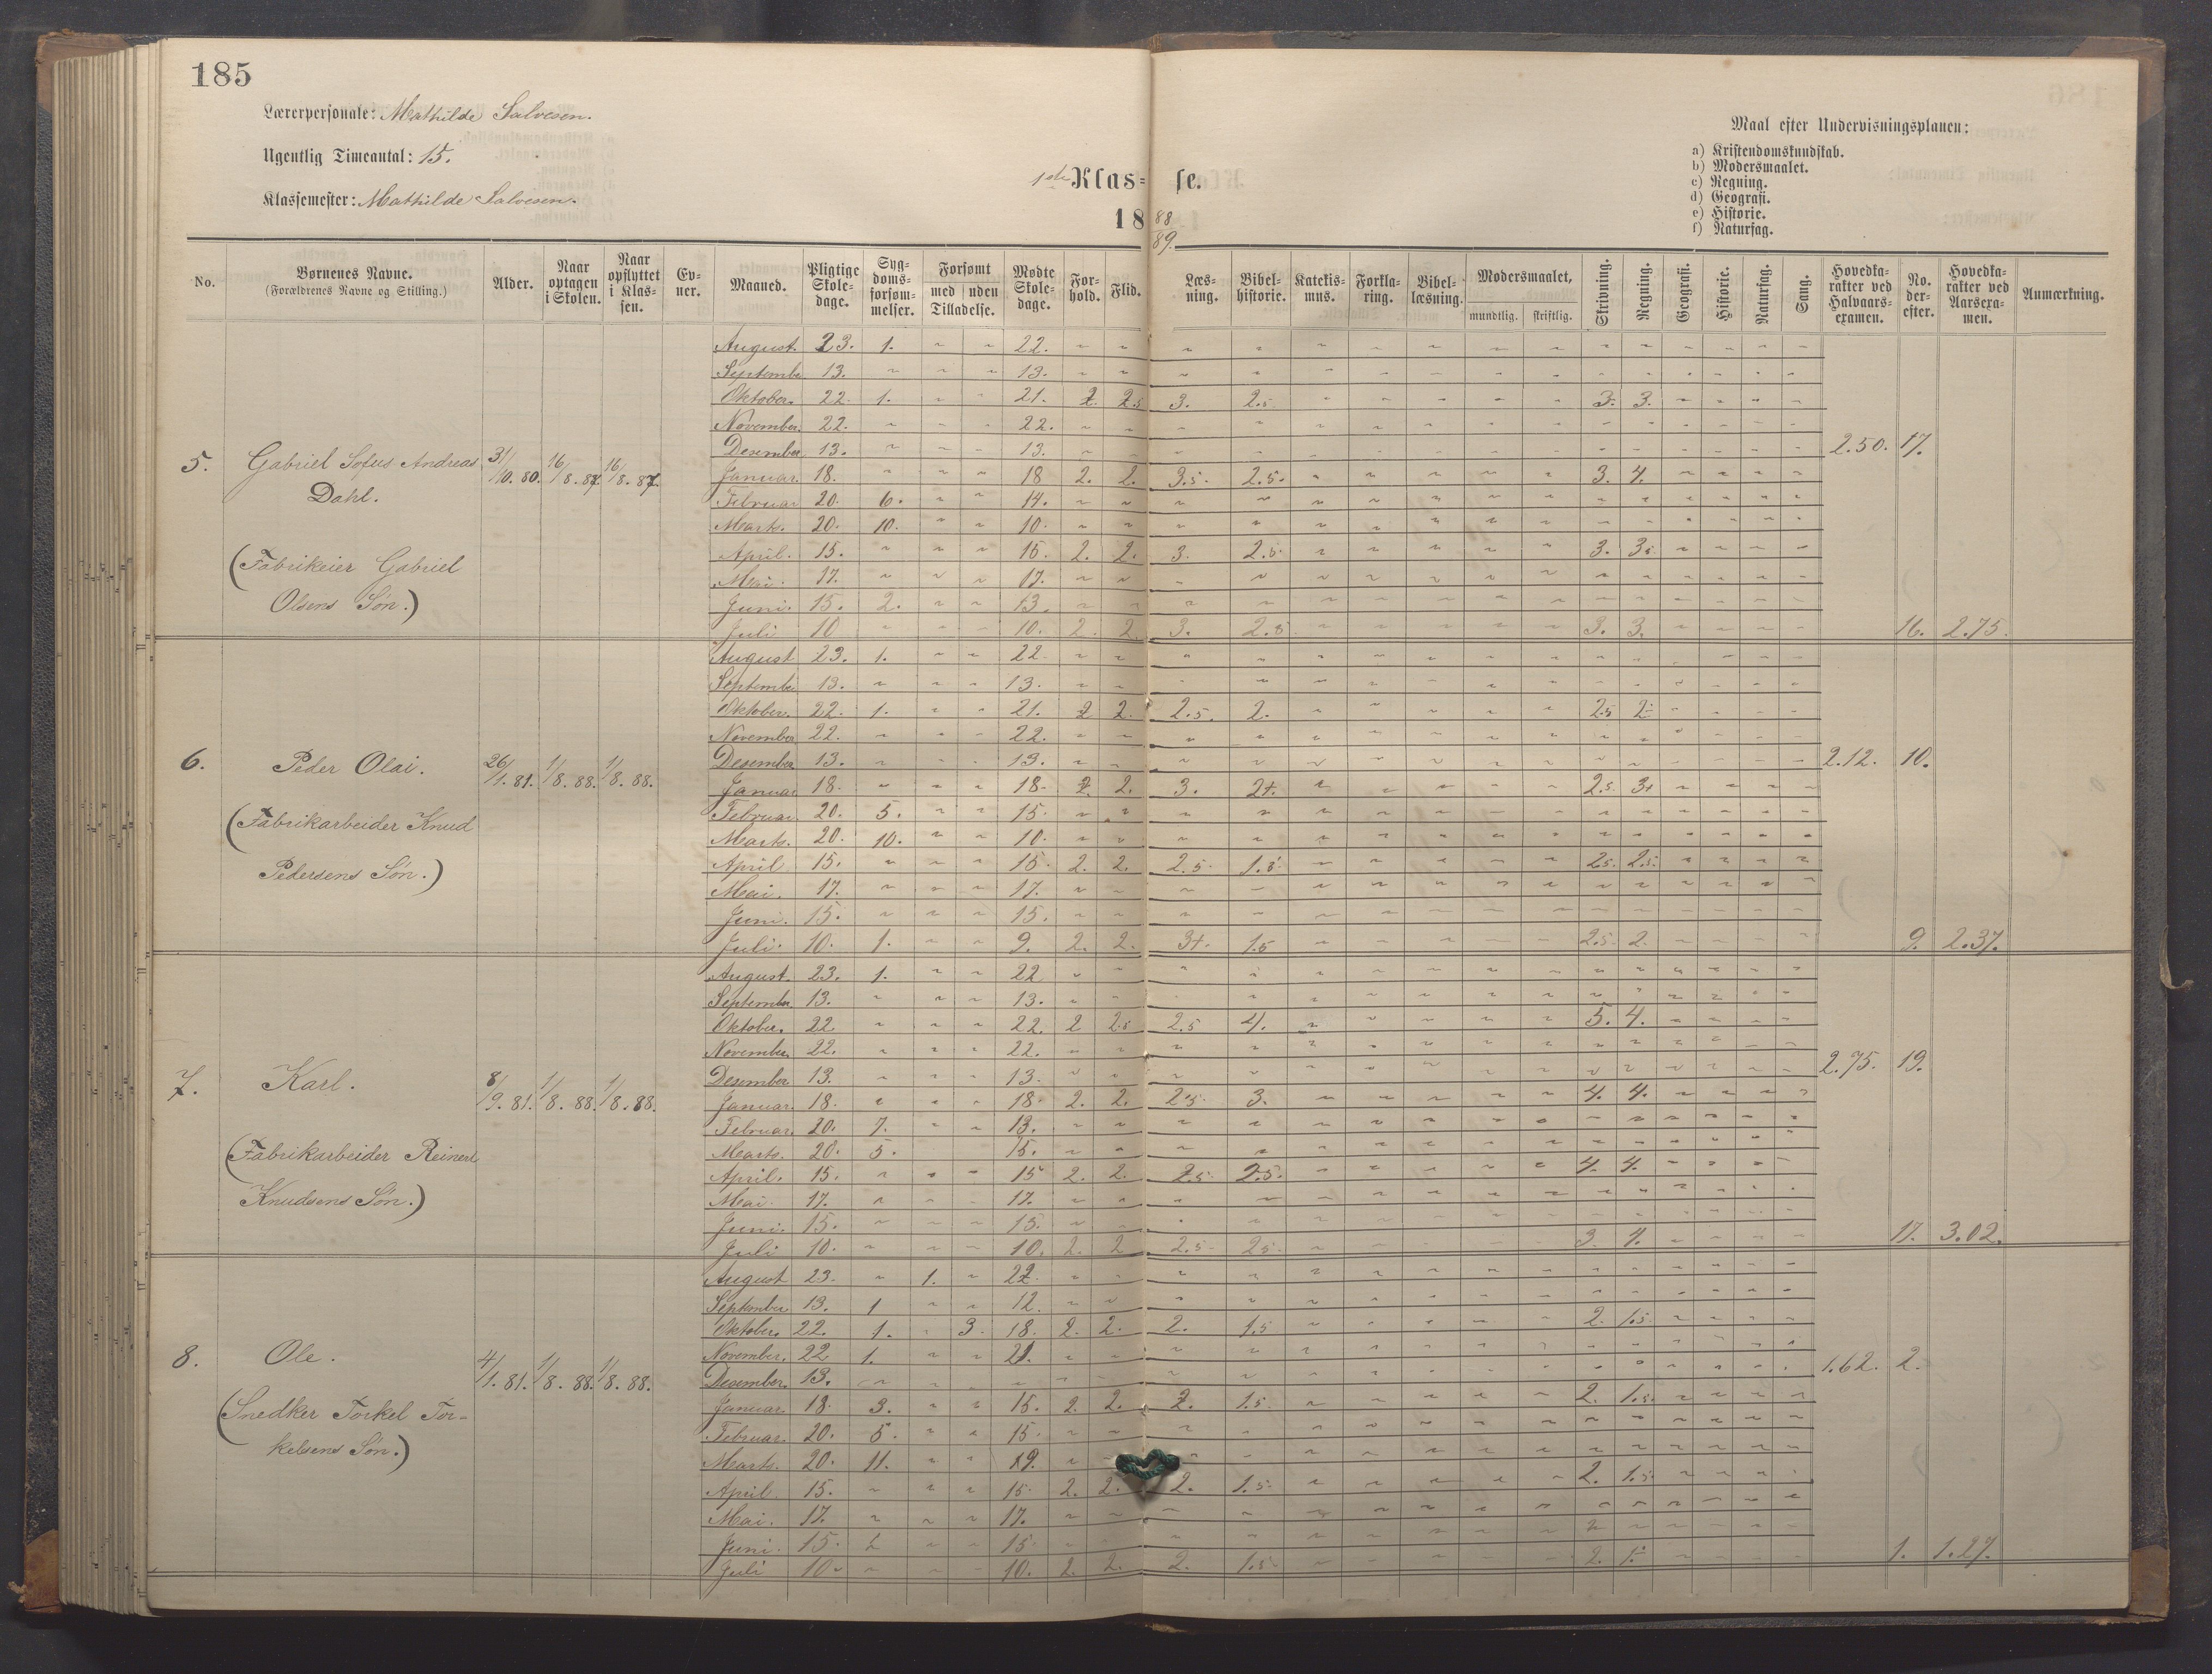 185
Lærerpersonale: Mathilde Salvesen.
Ugentlig Timeantal: 15.
Klassemester: Mathilde Salvesen.
1ste Klas= se.
18 88
89.
Maal efter Undervisningsplanen:
a) Kristendomskundskab.
b) Modersmaalet.
c) Regning.
d) Geografi.
e) Historie.
f) Naturfag.
No. | Børnenes Navne. (Forældrenes Navne og Stilling.) | Alder. | Naar optagen i Skolen. | Naar opflyttet i Klas=sen. | Ev=ner. | Maaned. | Pligtige Skole=dage. | Syg=doms=forsøm=melser. | Forsømt med uden Tilladelse. | Mødte Skole=dage. | For=hold. | Flid. | Læs=ning. | Bibel=historie. | Katekis=mus. | Forkla=ring. | Bibel=læsning. | Modersmaalet, mundtlig. skriftlig. | Skrivning. | Regning. | Geografi. | Historie. | Naturfag. | Sang. | Hovedka=rakter ved Halvaars=examen. | No. der=efter. | Hovedka=rakter ved Aarsexa=men. | Anmærkning.
5. Gabriel Sofus Andreas Dahl. 31/10.80. 16/8.87. 16/8.87.
(Fabrikeier Gabriel
Olsens Søn.)
August. 23. 1. 22.
Septembe. 13. 13.
Oktober. 22. 1. 21. 2. 2.5 3. 2.5. 3. 3.
November. 22. 22.
Desember 13. 13. 2.50. 17.
Januar. 18. 18 2. 2. 3.5. 2.5. 3. 4.
Februar 20. 6. 14.
Marts. 20. 10. 10.
April. 15. 15. 2. 2. 3. 2.5. 3. 3.5.
Mai. 17. 17.
Juni. 15. 2. 13.
Juli 10 10. 2. 2. 3. 2.5 3. 3. 16. 2.75.
6. Peder Olai. 26/1.81. 1/8.88. 1/8.88.
(Fabrikarbeider Knud
Pedersens Søn.)
August 23. 1. 22.
Septembe. 13. 13.
Oktober. 22. 1. 21. 2 2. 2.5. 2. 2.5 2.
November 22. 22.
Desember 13. 13. 2.12. 10.
Januar 18. 18. 2. 2. 3. 2+. 2.5. 3+
Februar. 20. 5. 15.
Marts. 20. 10. 10.
April 15. 15. 2. 2. 2.5. 1.5. 2.5. 2.5.
Mai. 17. 17.
Juni. 15. 15.
Juli. 10. 1. 9. 2. 2. 3+. 1.5 2.5. 2. 9. 2.37.
7. Karl. 8/9.81. 1/8.88. 1/8.88.
(Fabrikarbeider Reinert
Knudsens Søn.)
August. 23. 1. 22
September 13. 13.
Oktober. 22 22. 2 2.5 2.5 4. 5. 4.
November. 22. 22.
Desember 13. 13. 2.75. 19.
Januar. 18. 18. 2. 2. 2.5. 3. 4. 4.
Februar. 20. 7. 13.
Marts. 20. 5. 15.
April. 15. 15 2. 2. 2.5. 2.5. 4. 4.
Mai. 17. 17.
Juni. 15. 15.
Juli 10. 10. 2. 2 2.5. 2.5. 3. 4. 17. 3.02.
8. Ole. 4/1.81. 1/8.88. 1/8.88.
(Snedker Torkel Tor-
kelsens Søn.)
August 23. 1. 22.
September 13. 1 12.
Oktober. 22. 1. 3. 18. 2. 2. 2. 1.5 2. 1.5.
November. 22 1. 21.
Desember. 13. 1.62. 2.
Januar. 18. 3. 15. 2. 2. 2. 1.5. 2. 1.5.
Februar. 20. 5. 15.
Marts. 20. 11. 9.
April. 15. 15. 2. 2. 2. 1.5. 2. 1.5.
Mai. 17. 17.
Juni. 15. 15.
Juli 10. 10. 2. 2. 2. 1.5. 2. 1. 1. 1.27.